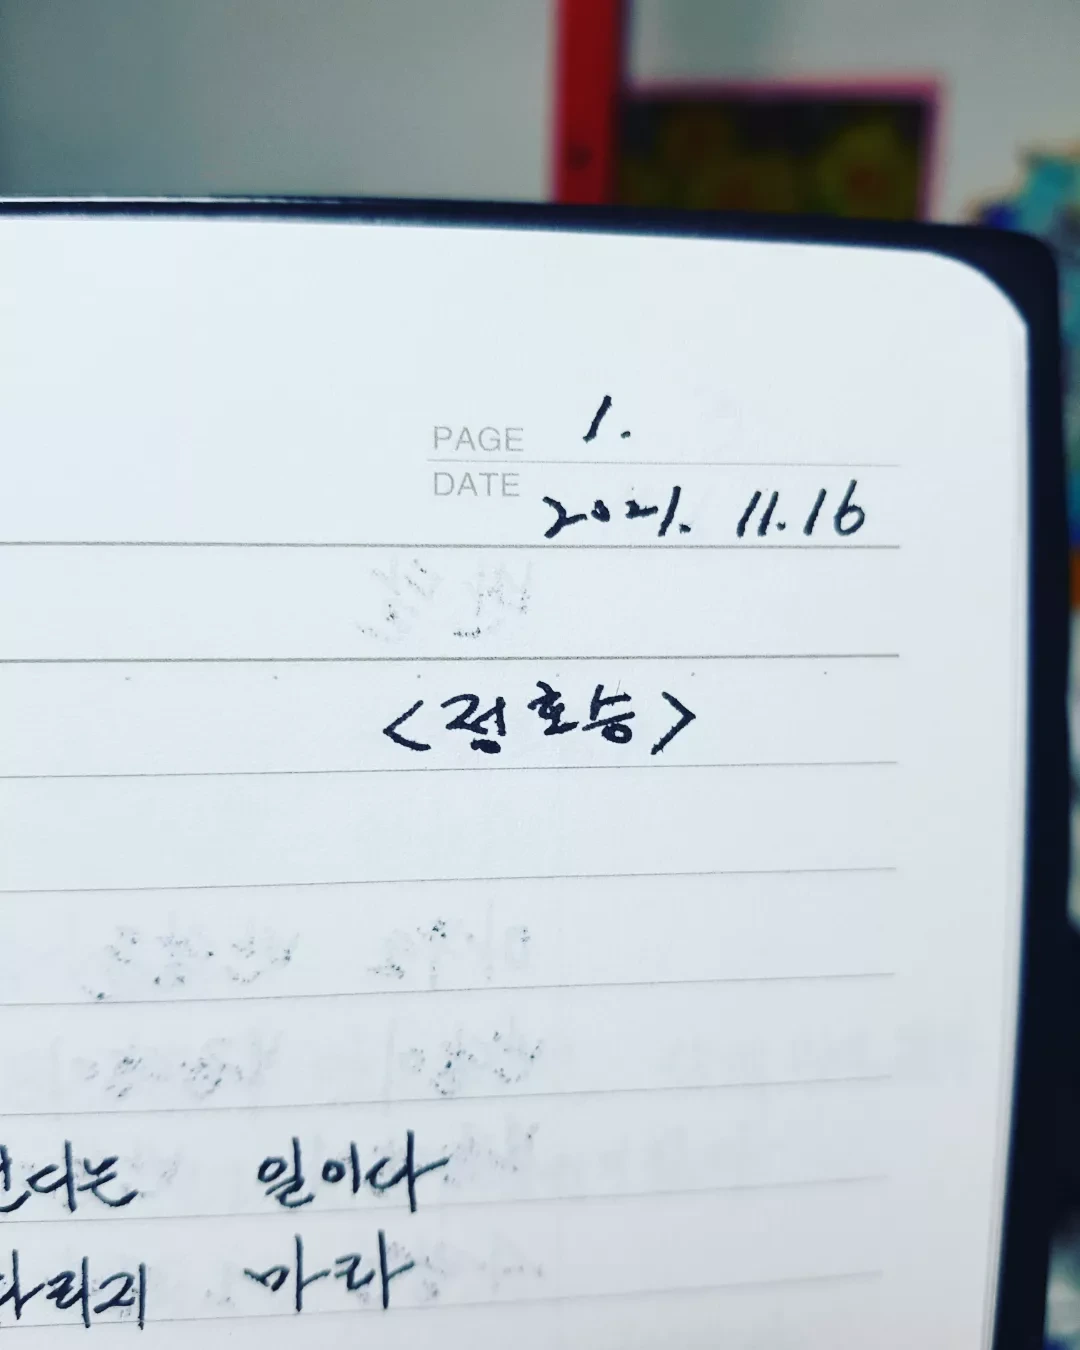 PAGE 1.
DATE 2021. 11. 16
<정호승>
견디는 일이다
다리지 마라